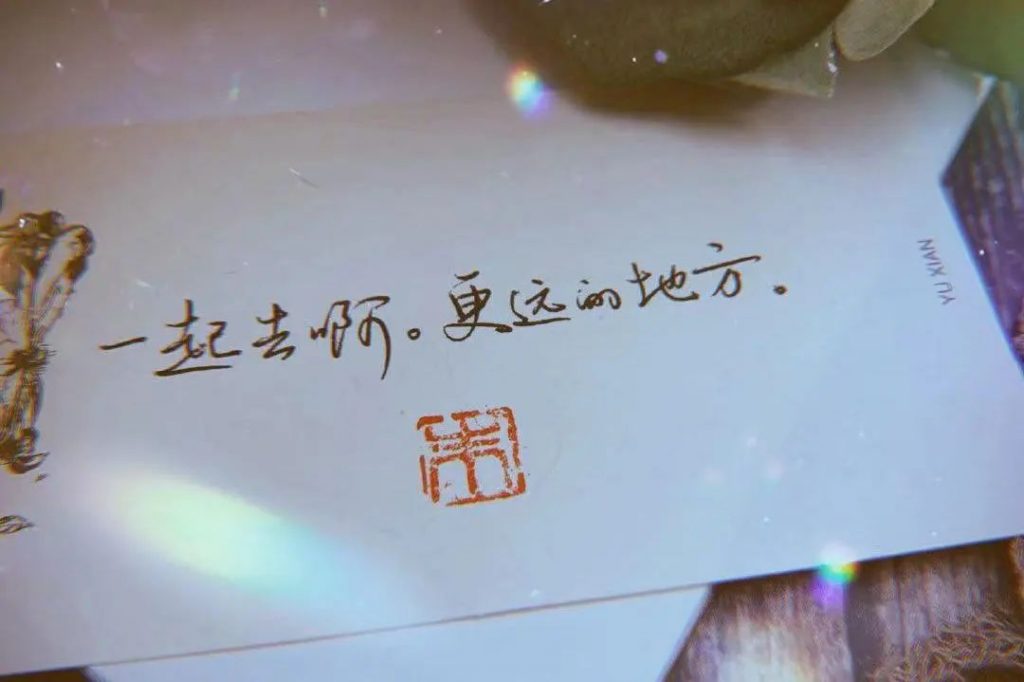 一起去啊。更远的地方。
YU XIAN